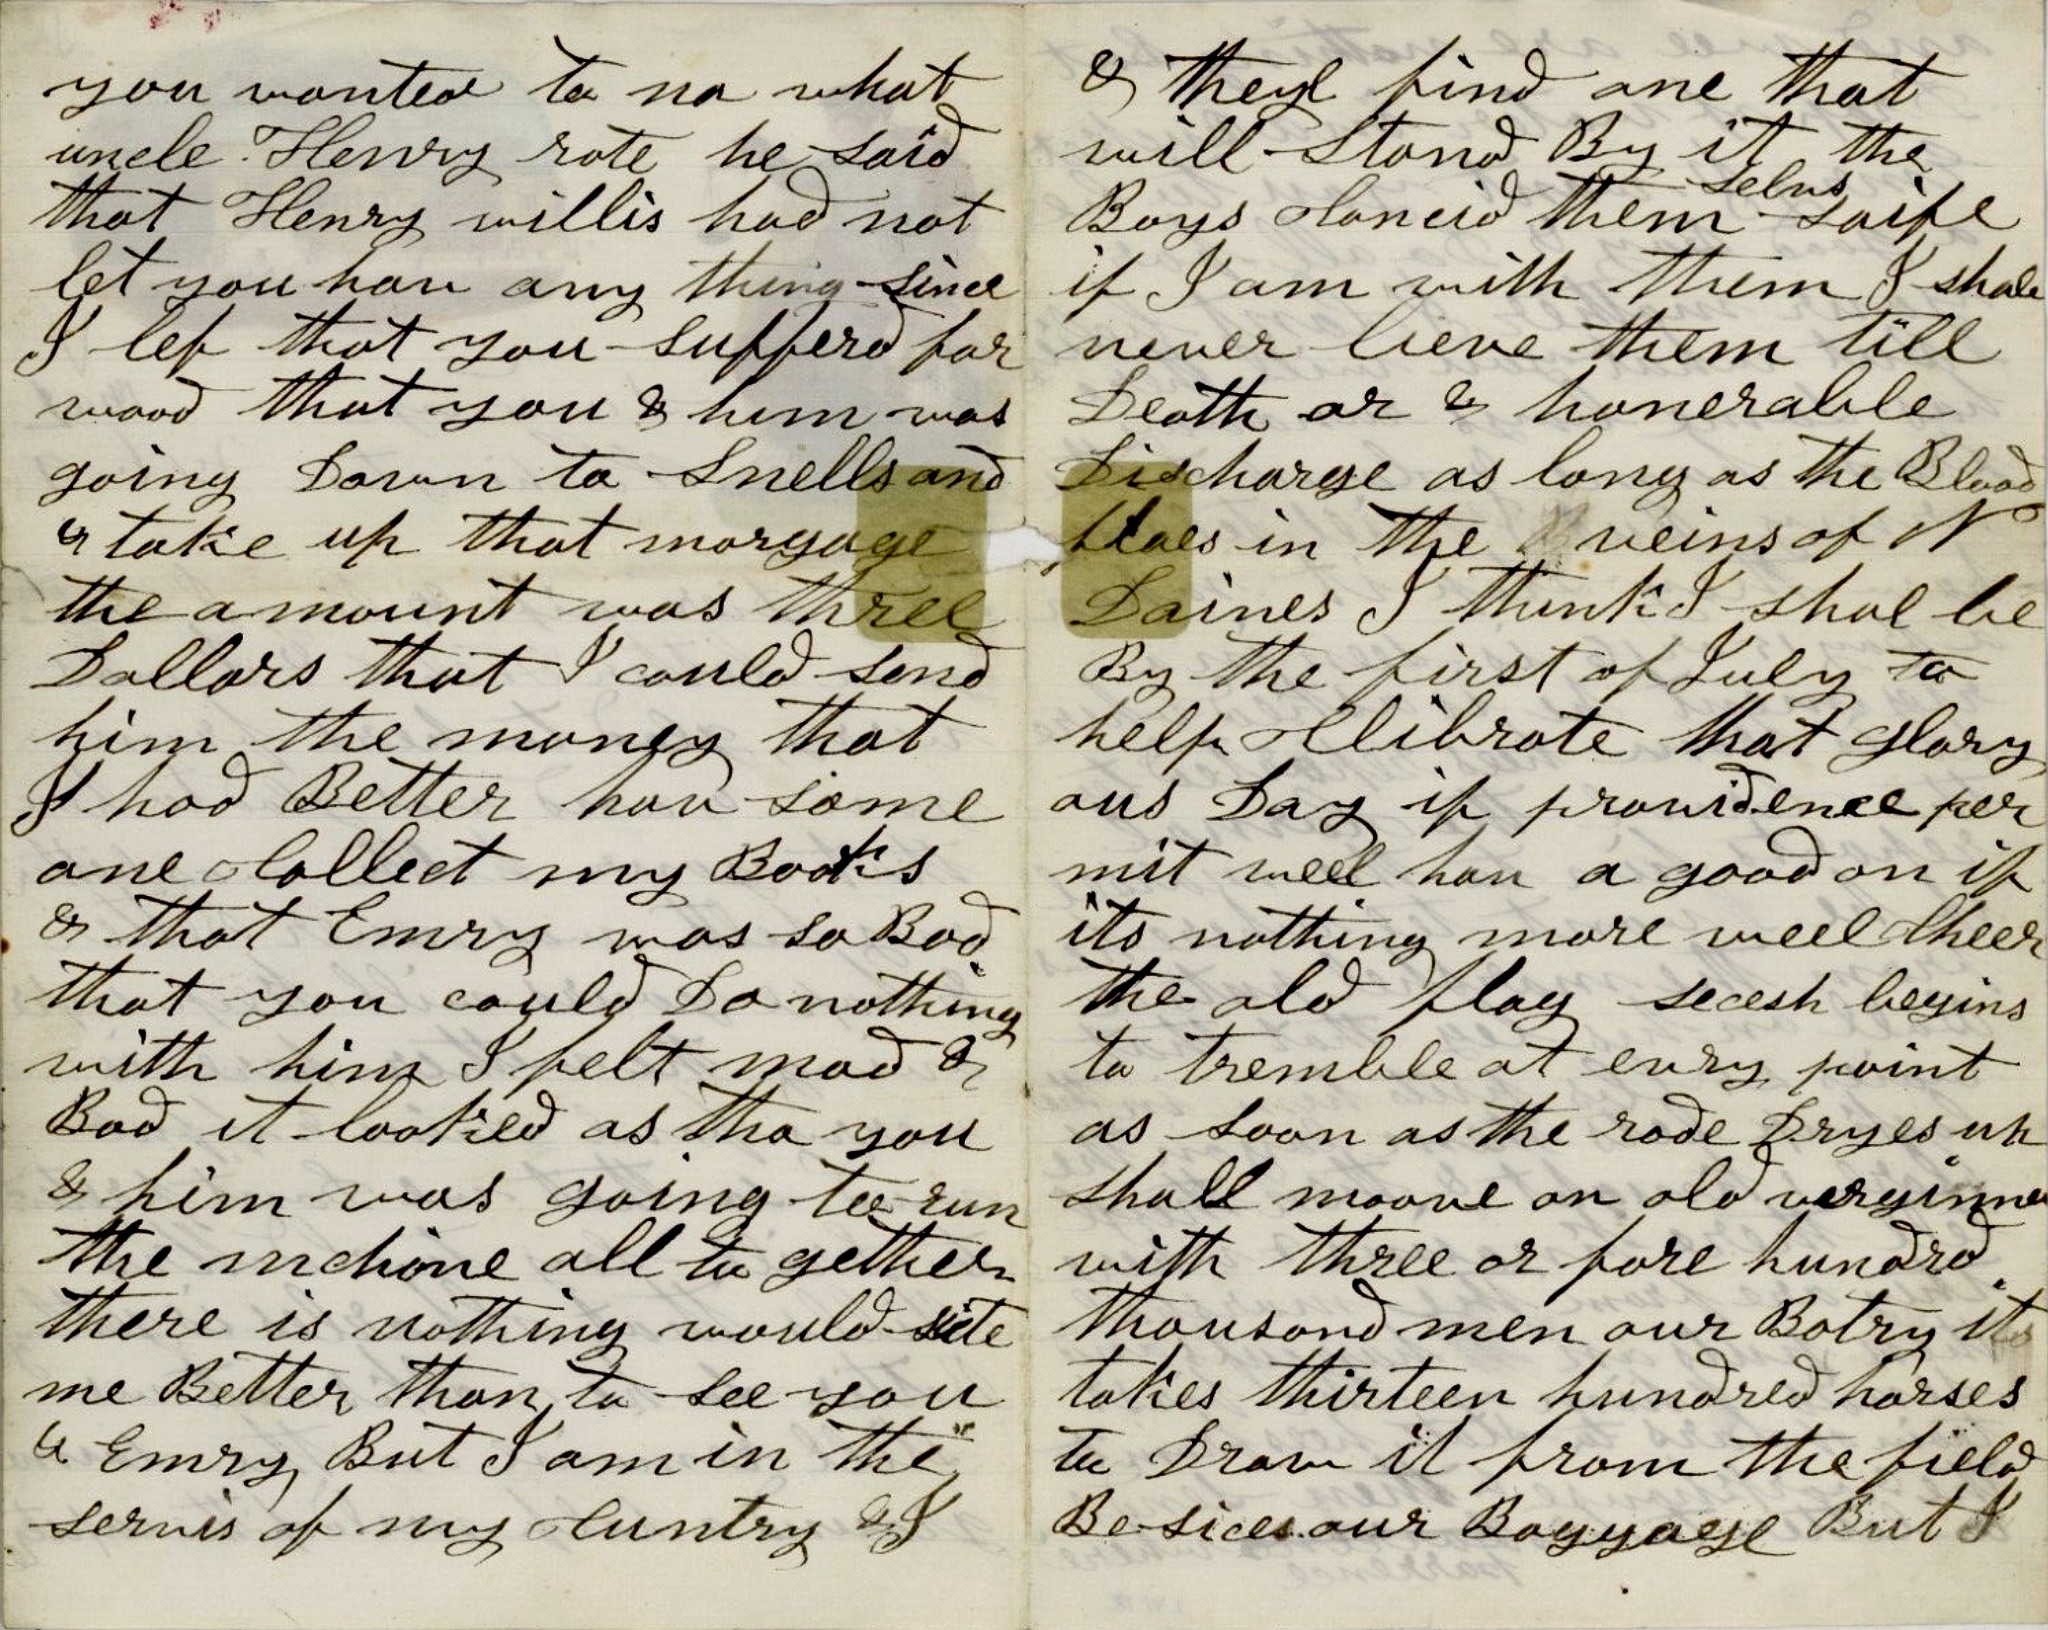 you wanted to no what
uncle Henry rote he said
that Henry willis had not
let you hav any thing since
I lef that you sufferd for
wood that you & him was
going Down to Snells and
& take up that morgage
the amount was three
Dollars that I could send
him the money that
I had Better hav some
one Collect my Books
& that Emry was so Bad
that you could Do nothing
with him I felt mad &
Bad it looked as tho you
& him was going to run
the mchine all to gether
there is nothing would suite
me Better than to see you
& Emry But I am in the
servis of my Cuntry & I
& theyl find one that
will Stand By it the
Boys Concid them selvs saife
if I am with them I shale
never lieve them till
Death or & honerable
Discharge as long as the Blood
floes in the veins of N
Daines I think I shal be
By the first of July to
help Clibrate that glory
ous Day if providence per
mit weel hav a good on if
its nothing more weel Cheer
the old flag secesh begins
to tremble at evry point
as soon as the rode Dryes up
shall moove on old verginna
with three or fore hundrd
thousand men our Batry it
takes thirteen hundred horses
to Draw it from the field
Be sices our Baggage But I